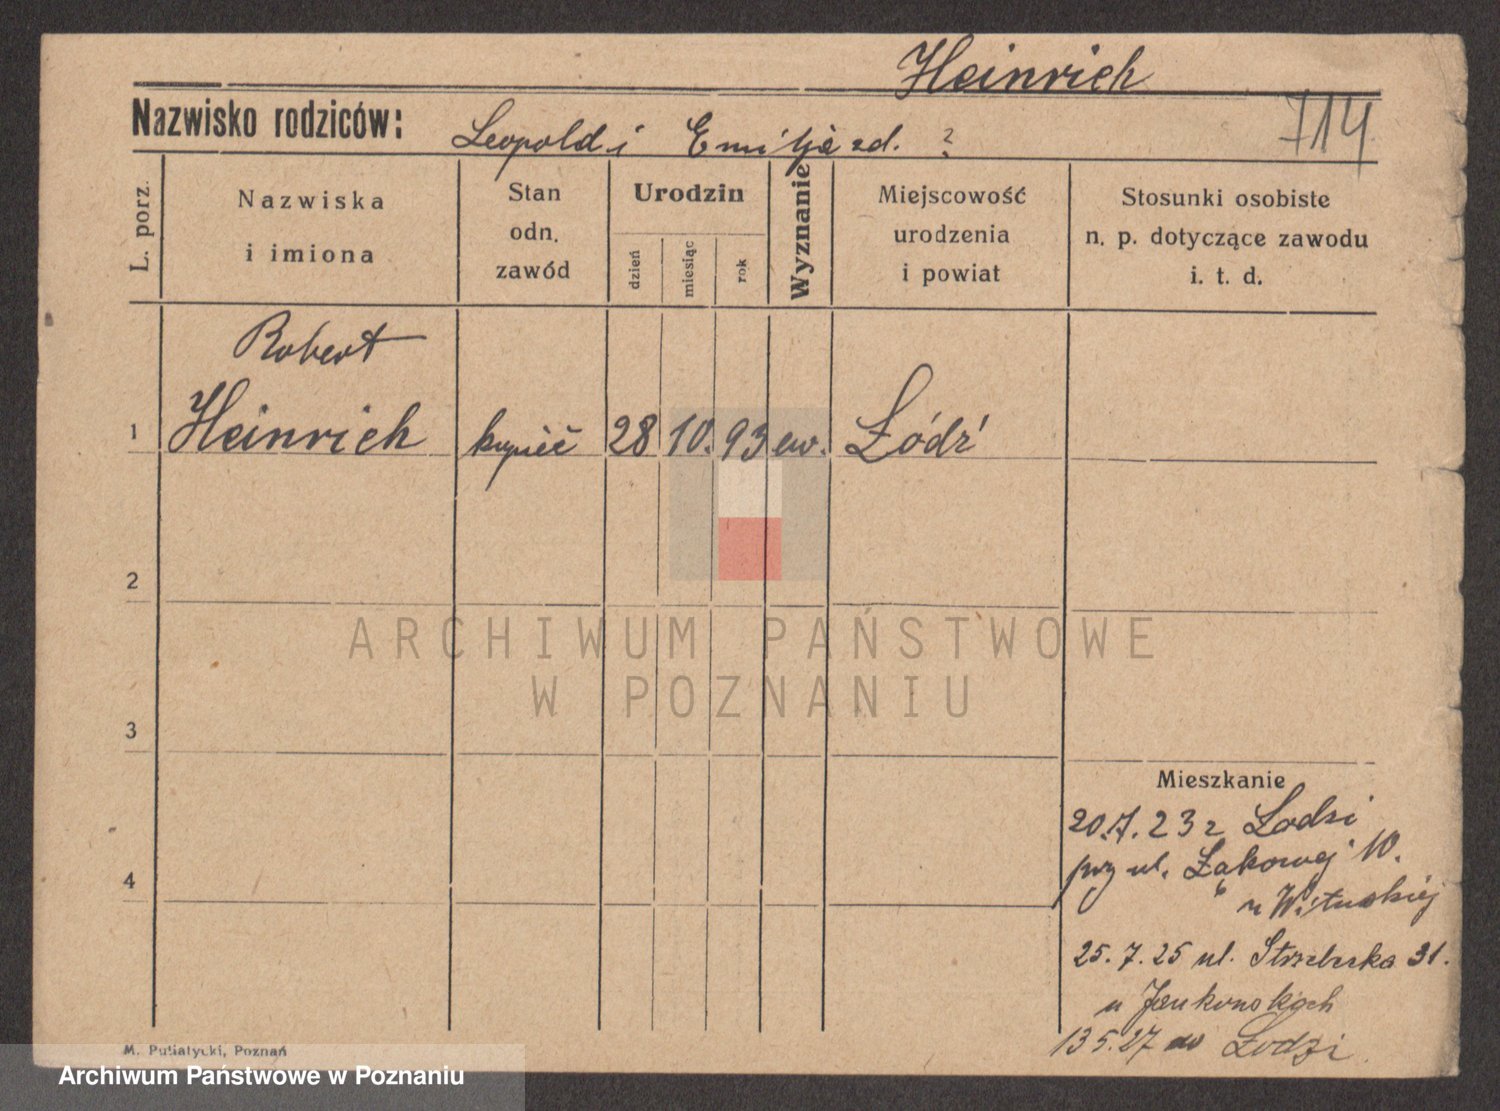 Heinrich
714
Nazwisko rodziców: Leopold i Emilja zd. ?
L. porz.
Nazwiska
i imiona
Stan
odn.
zawód
Urodzin
dzień
miesiąc
rok
Wyznanie
Miejscowość
urodzenia
i powiat
Stosunki osobiste
n. p. dotyczące zawodu
i. t. d.
Robert
1 Heinrich kupiec 28 10. 93 ew. Łódź
2
ARCHIWUM PAŃSTWOWE
W POZNANIU
3
Mieszkanie
20.7.23 z Łodzi
przy ul. Łąkowej 10.
u Wituskiej
4
25.7.25 ul. Strzelecka 31.
u Jankowskich
13 5.27 do Łodzi
M. Putiatycki, Poznań
Archiwum Państwowe w Poznaniu